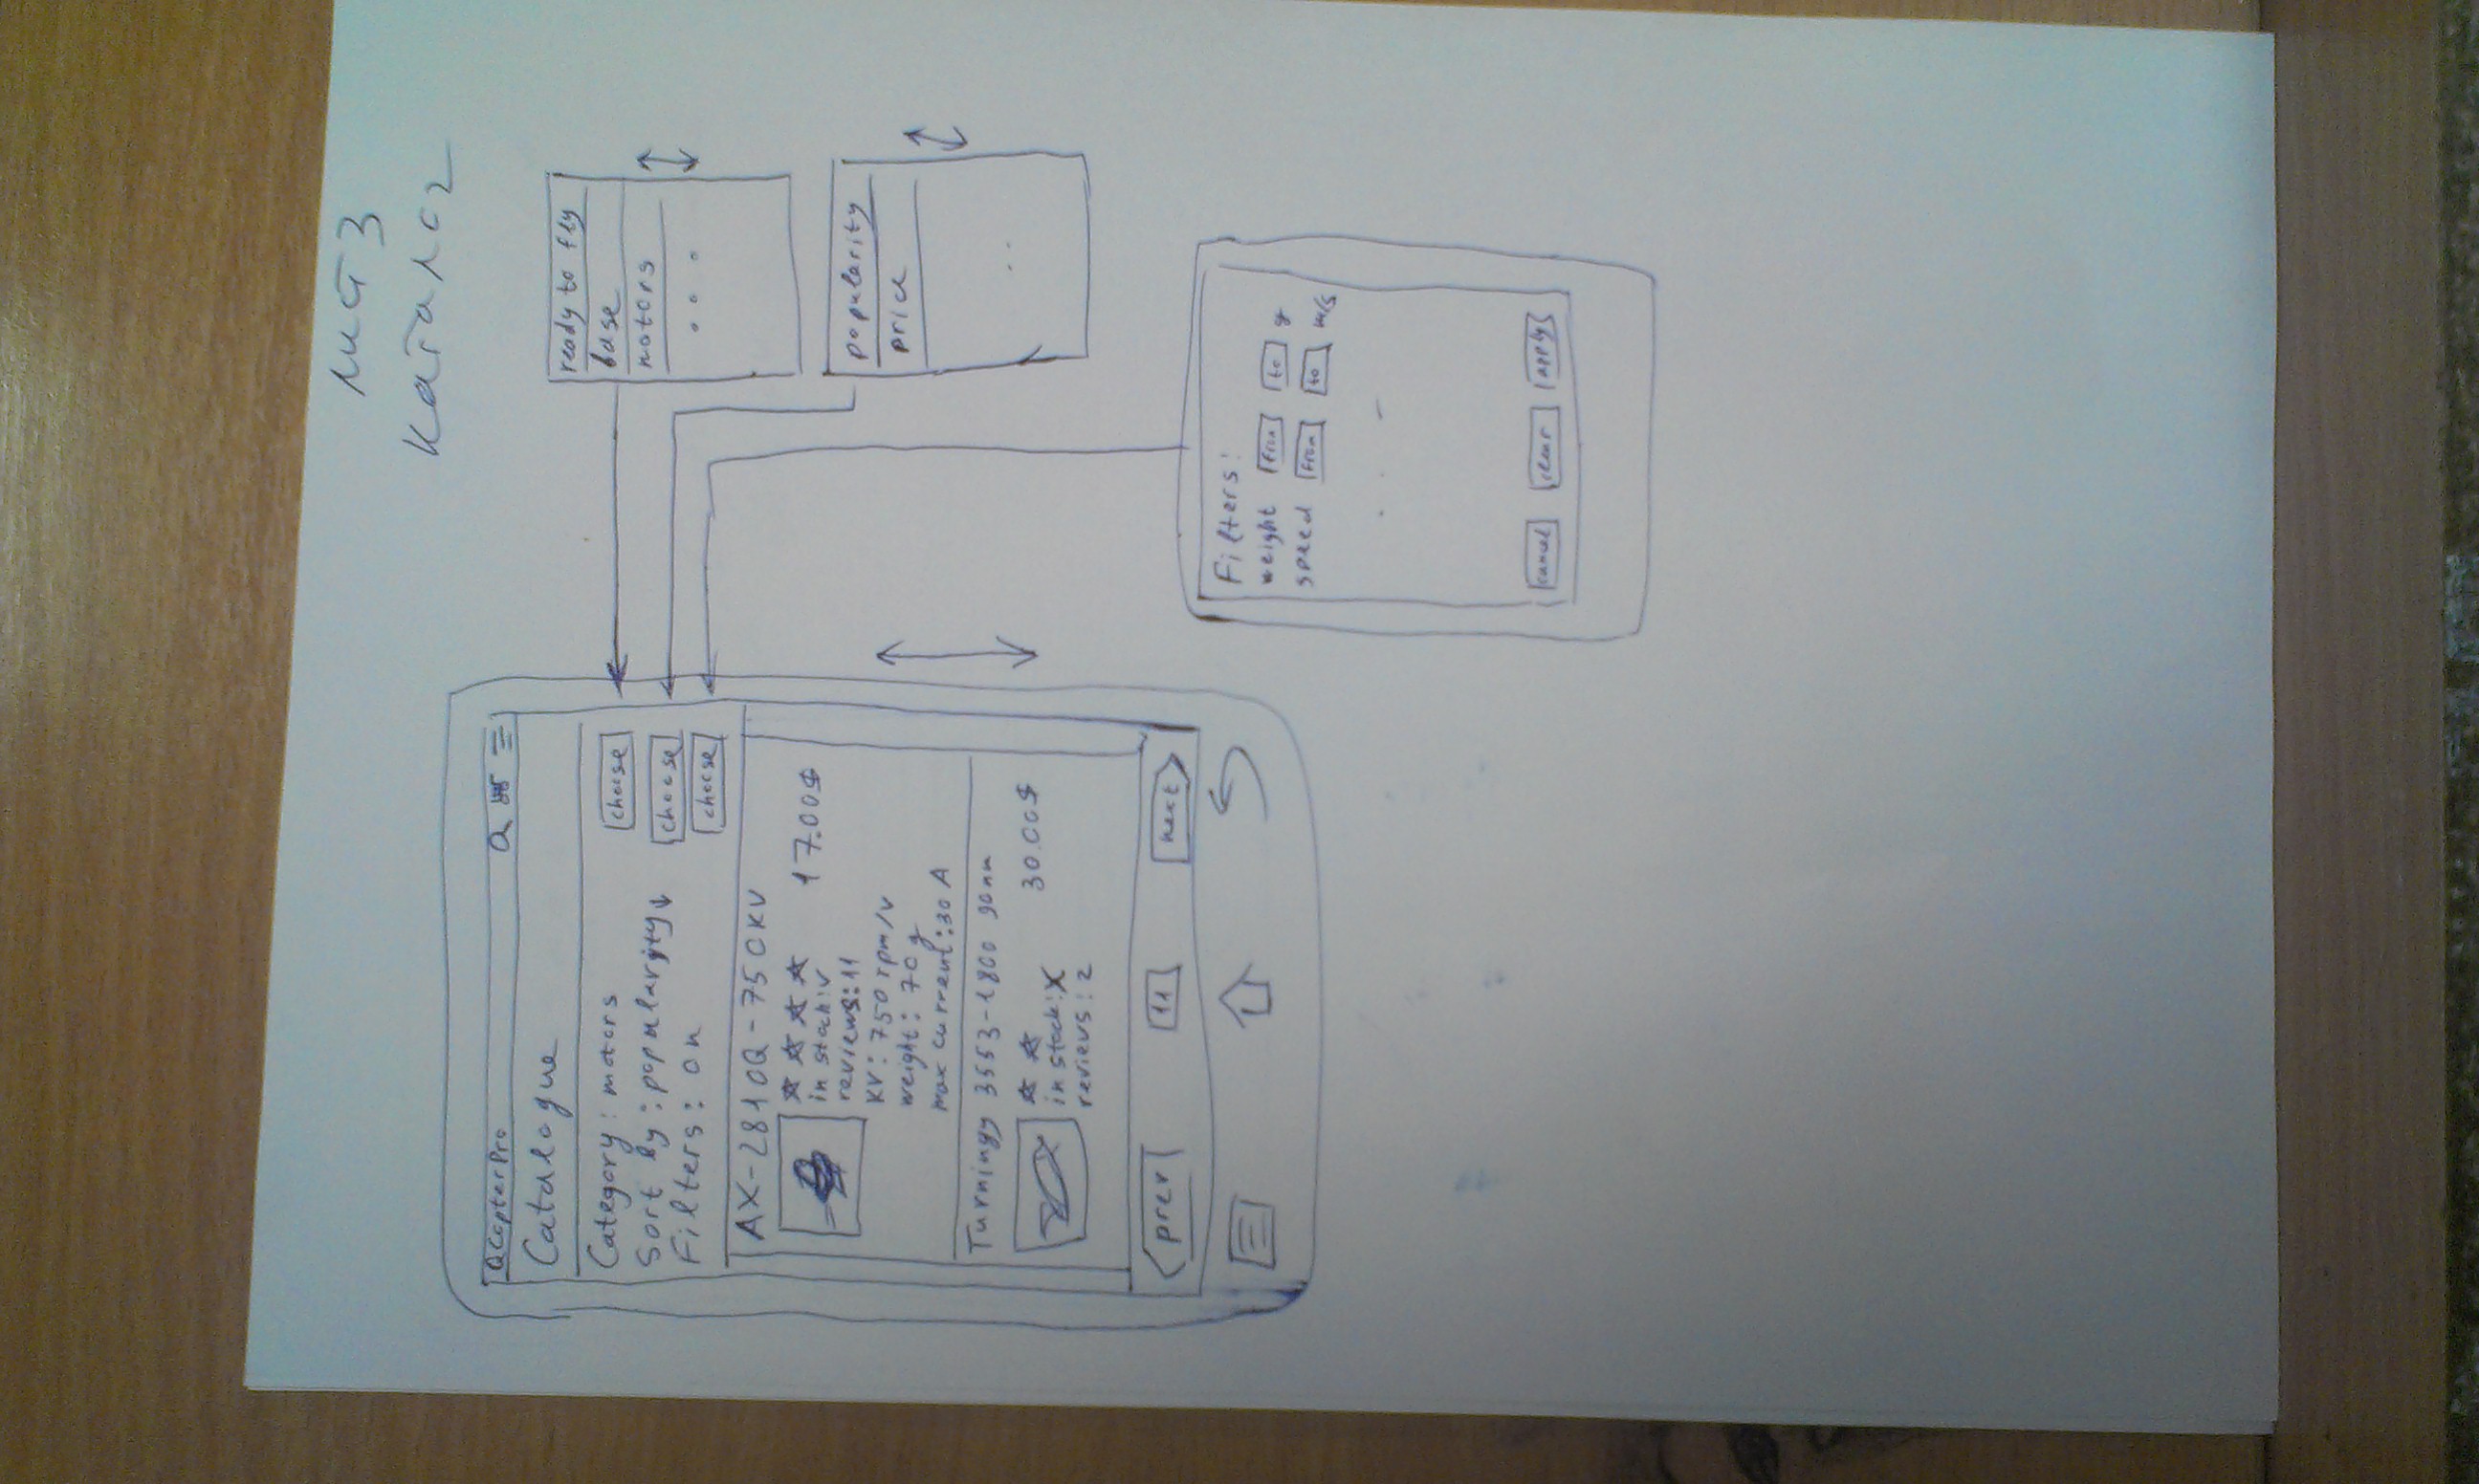 лист 3
каталог
QCopterPro
Catalogue
Category: motors choose
Sort by: popularity↓ choose
Filters: on choose
AX-2810Q-750KV
17.00$
in stock: v
reviews: 11
KV: 750 rpm/v
weight: 70 g
max current: 30 A
Turningy 3553-1800
30.00$
in stock: X
reviews: 2
prev 11 next
ready to fly
base
motors
popularity
price
Filters:
weight from to g
speed from to m/s
cancel clear apply